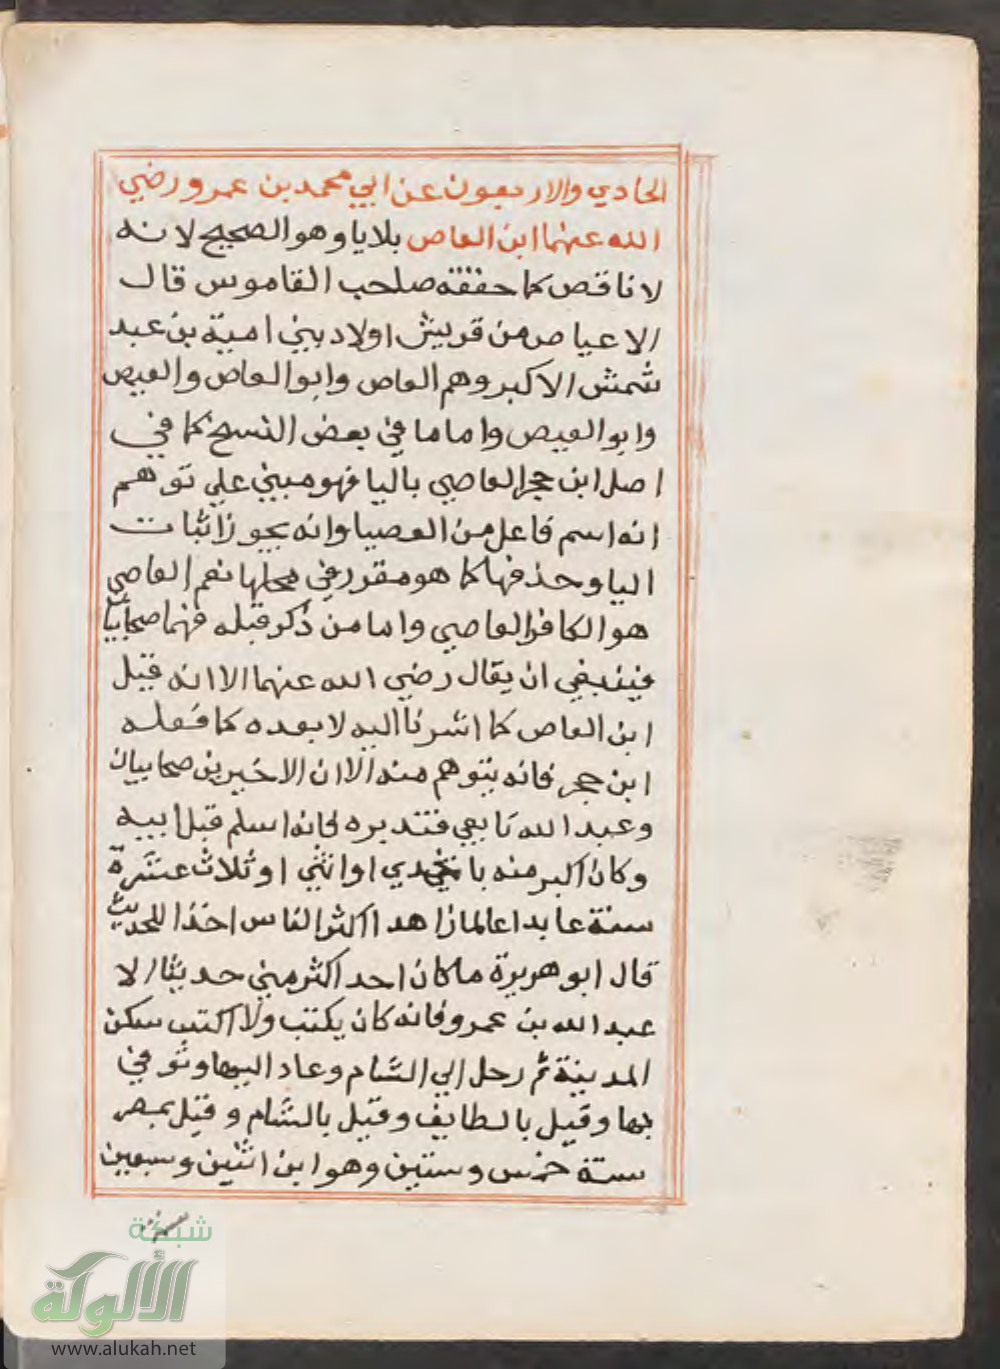 الحادي والاربعون عن ابي محمد بن عمرو رضي
الله عنهما ابن العاص بلايا وهو الصحيح لانه
لا ناقص كما حققه صاحب القاموس قال
الاعياص من قريش اولاد بني امية بن عبد
شمش الاكبر وهم العاص وابو العاص والعيص
وابو العيص واما ما في بعض النسخ كما في
اصل ابن حجر العاصي باليا فهو مبني علي توهم
انه اسم فاعل من العصيا وانه يجوز اثبات
اليا وحذفها كما هو مقرر في محلها نعم العاصي
هو الكافر العاصي واما من ذكر قبله فهما صحابيان
فينبغي ان يقال رضي الله عنهما الا انه قبل
ابن العاص كما اشرنا اليه لا بعده كما فعله
ابن حجر فانه يتوهم منه الا ان الاخيرين صحابيان
وعبد الله تابعي فتدبره فانه اسلم قبل ابيه
وكان اكبر منه باحدي او اثني او ثلاث عشرة
سنة عابدا عالما زاهدا اكثر الناس اخذا للحديث
قال ابو هريرة ما كان احد اكثر مني حديثا الا
عبد الله بن عمرو فانه كان يكتب ولا اكتب سكن
المدينة ثم رحل الي الشام وعاد اليها وتوفي
بها وقيل بالطايف وقيل بالشام وقيل بمصر
سنة خمس وستين وهو ابن اثنين وسبعين
شبكة
الألوكة
www.alukah.net